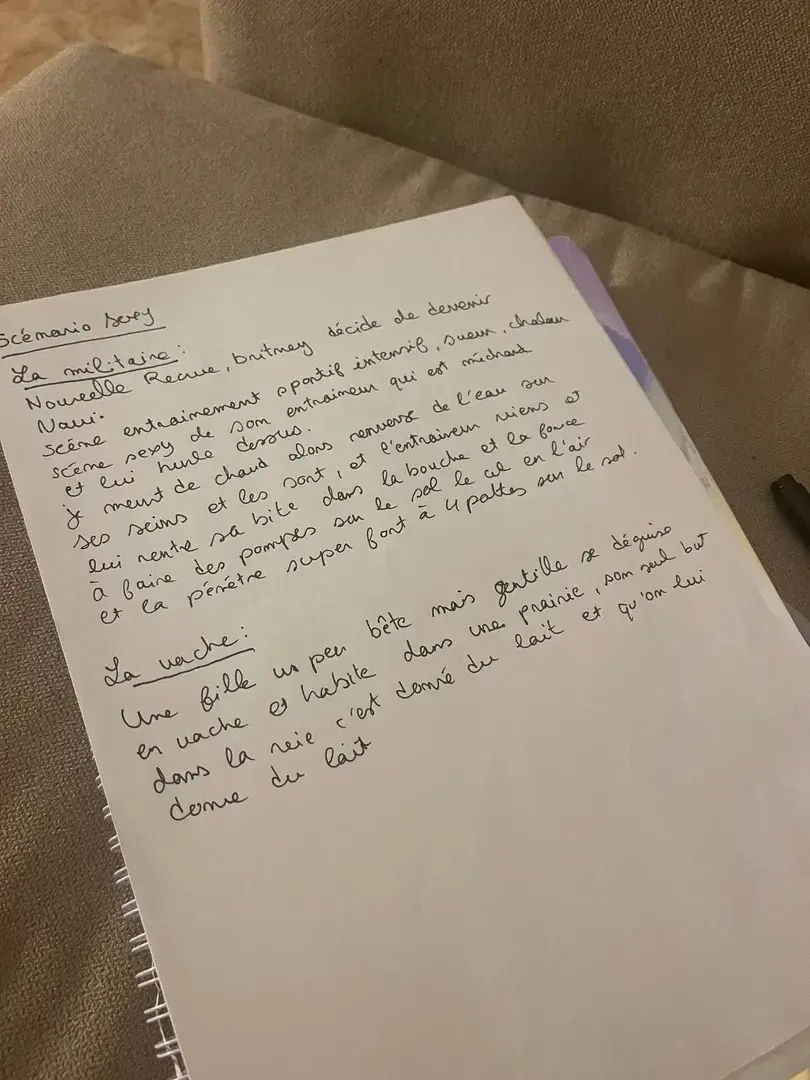 Scénario sexy
La militaire :
Nouvelle Recrue, britney décide de devenir
Navi.
scène entrainement sportif intensif, sueur, chaleur
scène sexy de son entraineur qui est méchant
et lui hurle dessus.
je meurt de chaud alors renverse de l'eau sur
ses seins et les sont, et l'entraineur viens et
lui rentre sa bite dans la bouche et la force
à faire des pompes sur le sol le cul en l'air
et la pénétre super fort à 4 pattes sur le sol.
La vache :
Une fille un peu bête mais gentille se déguise
en vache et habite dans une prairie, son seul but
dans la vie c'est donné du lait et qu'on lui
donne du lait